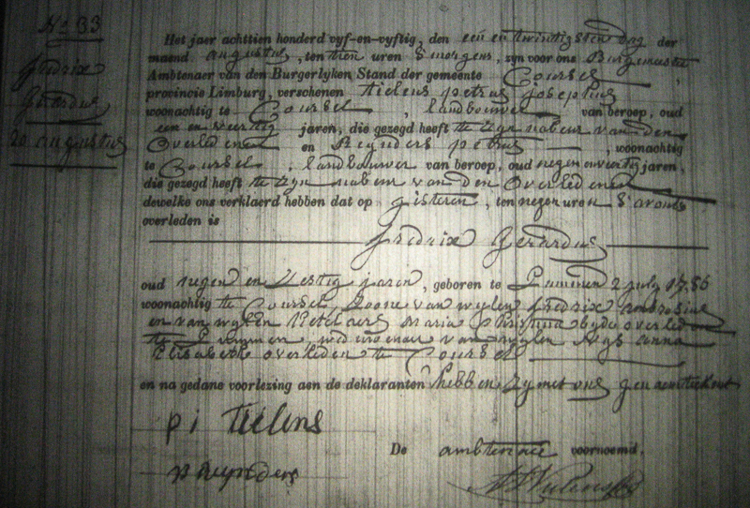 No 33
Fredrix
Gerardus
20 augustus
Het jaer achttien honderd vyf-en-vyftig, den een en twintigsten dag der
maend augustus, ten tien uren s'morgens, zyn voor ons Burgemeester
Ambtenaer van den Burgerlyken Stand der gemeente Coursel,
provincie Limburg, verschenen Tielens petrus Josephus
woonachtig te Coursel, landbouwer van beroep, oud
een en veertig jaren, die gezegd heeft te zyn nabuer van den
Overledenen en Reynders petrus, woonachtig
te Coursel, landbouwer van beroep, oud negen en veertig jaren,
die gezegd heeft te zyn nabuer van den Overledenen
dewelke ons verklaerd hebben dat op gisteren, ten negen uren s'avonds
overleden is
Fredrix Gerardus
oud negen en zestig jaren, geboren te Lummen 2 july 1786
woonachtig te Coursel, Zoone van wylen fredrix ambrosius
en van wylen Maria Christina byde overleden
te Lummen, weduwenaer van wylen anna
Elisabeth overleden te Coursel
en na gedane voorlezing aen de deklaranten hebben zy met ons geteekend
p j Tielens
p Reynders
De ambtenaer voornoemd,